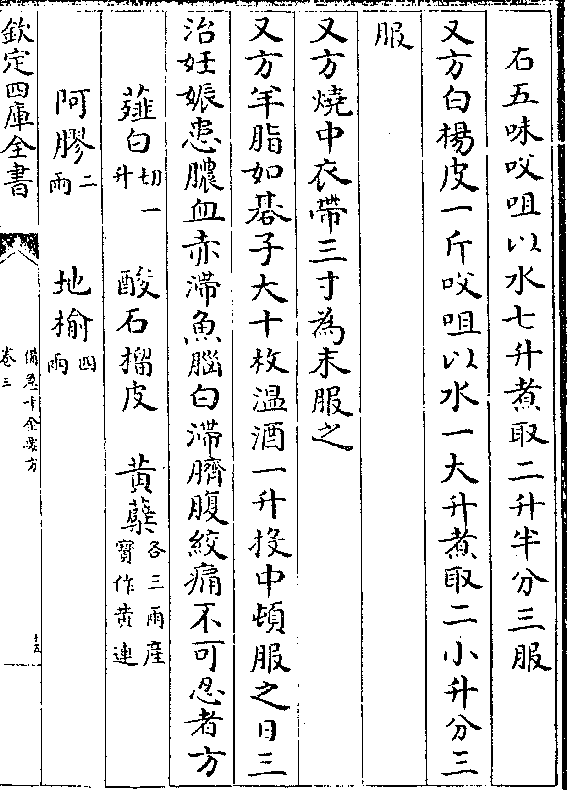 右五味㕮咀以水七升煮取二升半分三服
又方白楊皮一斤㕮咀以水一大升煮取二小升分三
服
又方燒中衣帶三寸為末服之
又方羊脂如碁子大十枚溫酒一升投中頓服之日三
治妊娠患膿血赤滯魚腦白滯臍腹絞痛不可忍者方
薤白切一升 酸石榴皮 黃蘗各三兩産寶作黄連
阿膠二兩 地榆四兩
欽定四庫全書
備急千金要方
卷三